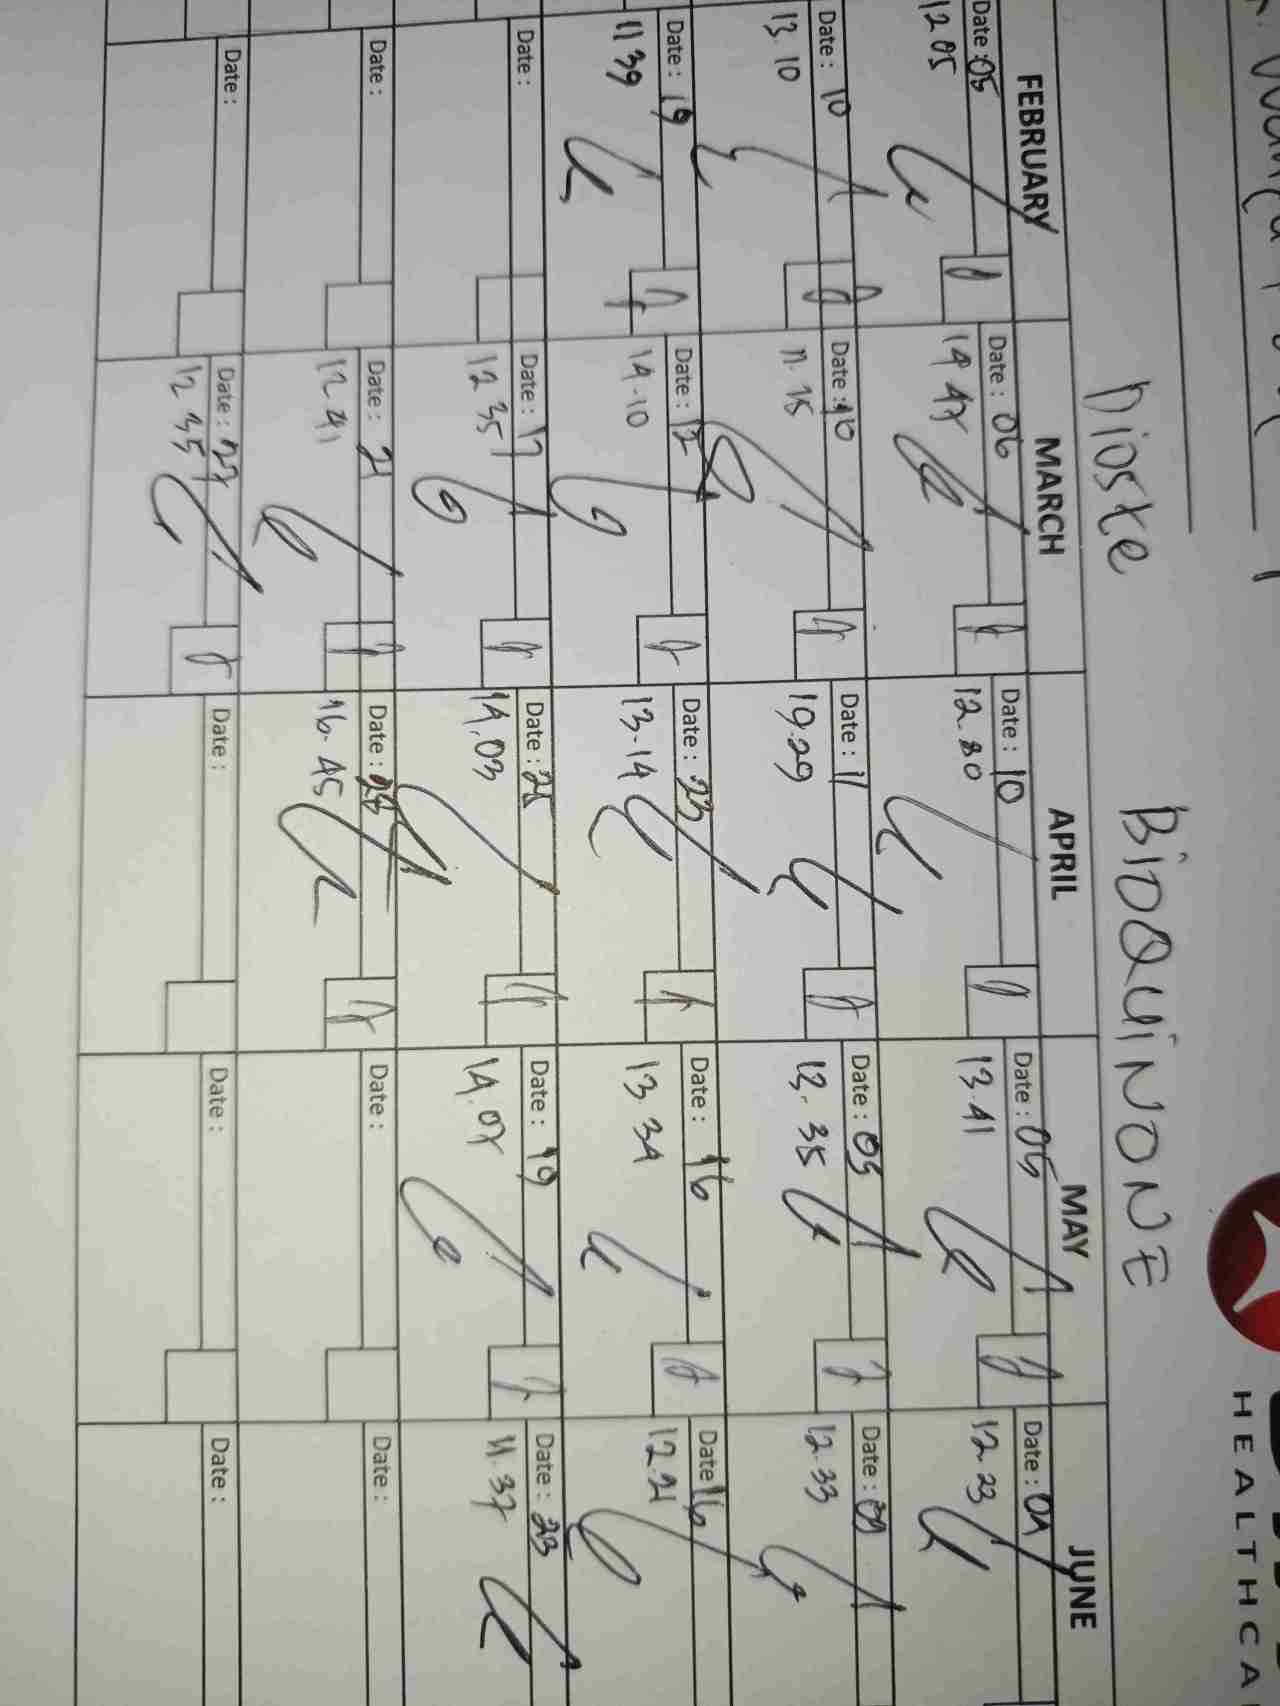 Dioste BiOQUiNONE
HEALTHCA
FEBRUARY MARCH APRIL MAY JUNE
Date: 05 Date: 06 Date: 10 Date: 05 Date: 04
12 05 14 47 12.30 13.41 12.23
Date: 10 Date: 10 Date: 11 Date: 09
13.10 11.15 19.29 12.33
Date: 19 Date: 12 Date: 23 Date: 16 Date 16
11 39 14.10 13.14 13.34 12.21
Date: Date: 17 Date: 25 Date: 19 Date: 23
12 35 14.03 14.07 11.37
Date: Date: 21 Date: Date: Date:
12 41 16.45
Date: Date: 27 Date: Date: Date:
12 35